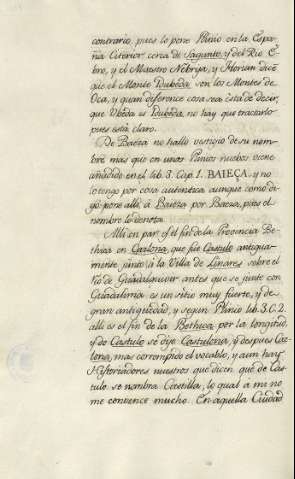 contrario, pues lo pone Plinio en la Espa-
ña Citerior cerca de Sagunto, y del Rio E-
bro, y el Maestro Nebrija, y Florian dicen
que el Monte Idubeda son los Montes de
Oca, y quan diferente cosa sea esta de decir,
que Ubeda es Idubeda, no hay que tractarlo
pues está claro.
De Baeza no hallo vestigio de su nom-
bre mas que en unos Plinios nuebos viene
añadido en el lib. 3. Cap. 1. BAIEÇA, y no
lo tengo por cosa autentica aunque como da-
go pone allí, à Baieza por Baeza, pues el
nombre lo denota.
Alli en par of el fin de la Provincia Be-
thica en Cazlona, que fue Castulo antigua-
mente junto à la Villa de Linares sobre el
Rio de Guadalquivir antes que se junte con
Guadalimar es un sitio muy fuerte, y de
gran antiguedad, y segun Plinio lib. 3. C. 2.
alli es el fin de la Bethica por la longitud,
y de Castulo se dijo Castulona, y despues Caz-
lona, mas corrompido el vocablo, y aun hay
Historiadores nuestros que dicen que de Cas-
tulo se nombra Castilla, lo qual a mi no
me convence mucho. En aquella Ciudad